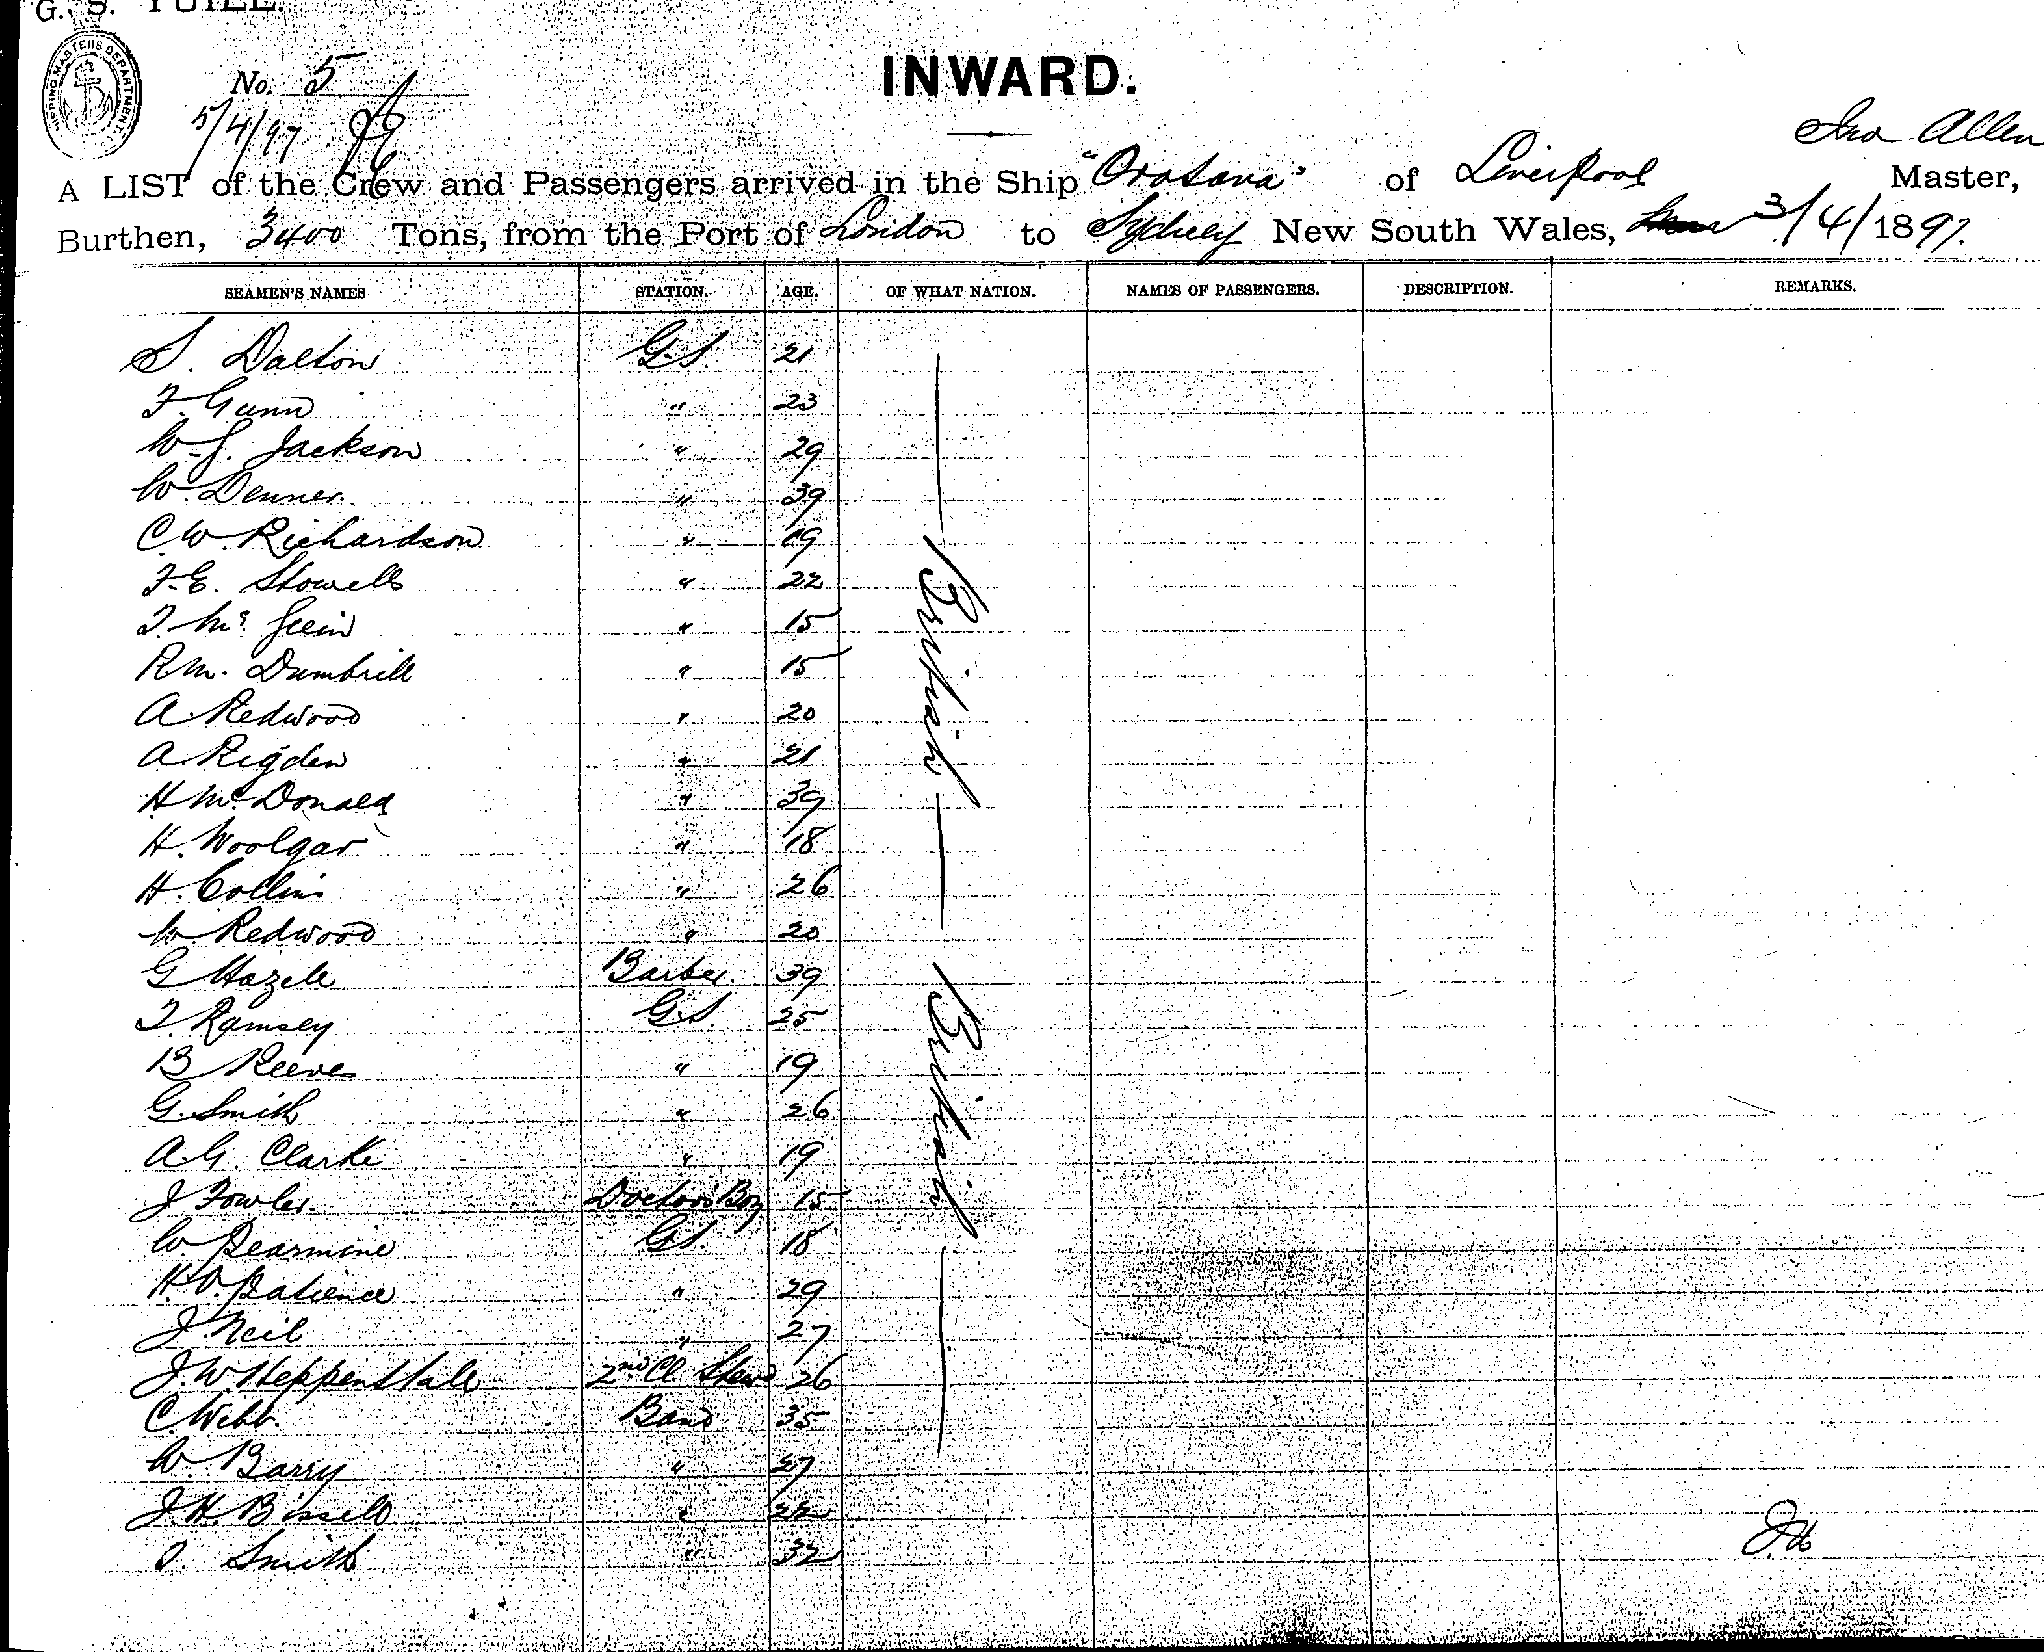 G. S. YUILL.
SHIPPING MASTERS DEPARTMENT.
No. 5
5/4/97
INWARD.
Jno Allen
A LIST of the Crew and Passengers arrived in the Ship "Orotava" of Liverpool Master,
Burthen, 3400 Tons, from the Port of London to Sydney New South Wales, 3/4/1897.
SEAMEN'S NAMES STATION. AGE. OF WHAT NATION. NAMES OF PASSENGERS. DESCRIPTION. REMARKS.
S. Dalton G.S. 21
F. Gunn " 23
W. J. Jackson " 29
W. Denner " 39
C. W. Richardson " 19
F. E. Stowells " 22
T. Mc " 15
R M. Dumbrill " 15
A Redwood " 20
A Rigden " 21
H McDonald " 39
H. Woolgar " 18
H. Collins " 26
W. Redwood " 20
British
G Hazell Barber 39
T. Ramsey G.S. 25
B Reeves " 19
G. Smith " 26
A. G. Clarke " 19
J Fowler Doctors Boy 15
W. Pearmine G.S. 18
H. O. Patience " 29
J. Neil " 27
J. W Heppenstall 2nd Cl Stew 26
C. Webb Band 35
W. Barry " 27
J. H. " 22
T. Smith " 32
British